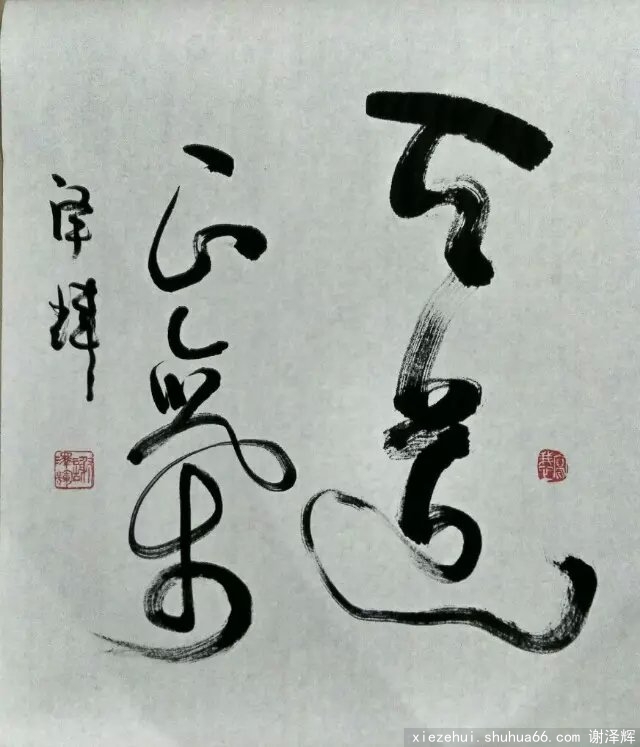 天道
正氣
泽輝
xiezehui.shuhua66.com 谢泽辉